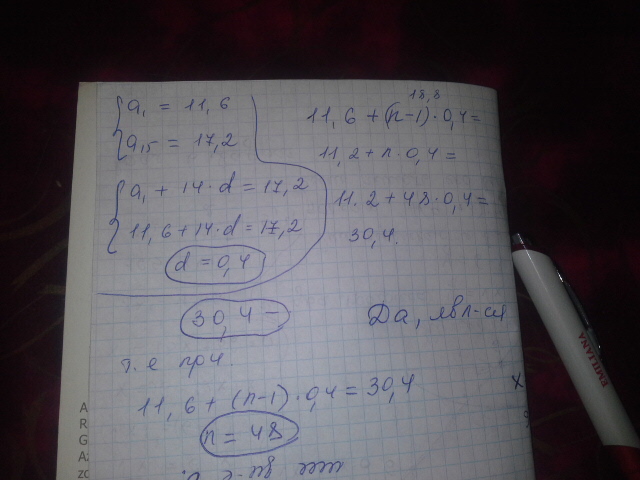 a₁ = 11,6
a₁₅ = 17,2
a₁ + 14·d = 17,2
11,6 + 14·d = 17,2
d = 0,4
18,8
11,6 + (n-1)·0,4 =
11,2 + n·0,4 =
11.2 + 48·0,4 =
30,4.
30,4 –
Да, явл-ся
т.е при
11,6 + (n-1)·0,4 = 30,4
n = 48
EMILIANA